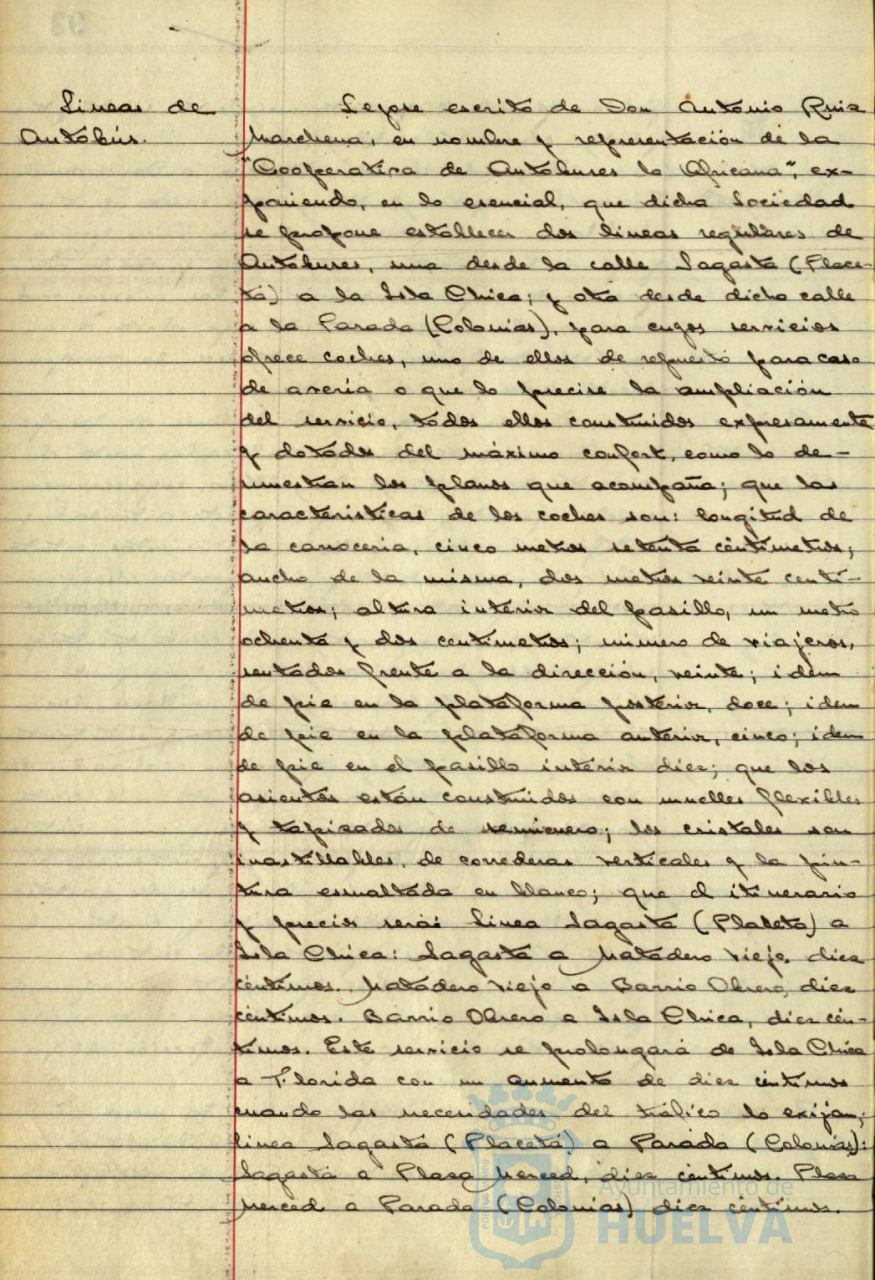 Líneas de
Autobús.
Leyose escrito de Don Antonio Ruiz
Marchena, en nombre y representación de la
"Cooperativa de Autobuses la Africana", ex-
poniendo, en lo esencial, que dicha Sociedad
se propone establecer dos lineas regulares de
Autobuses, una desde la calle Sagasta (Place-
ta) a la Isla Chica; y otra desde dicha calle
a la Parada (Colonias), para cuyos servicios
ofrece coches, uno de ellos de repuesto para caso
de avería o que lo precise la ampliación
del servicio, todos ellos construidos expresamente
y dotados del máximo confort, como lo de-
muestran los planos que acompaña; que las
características de los coches son: longitud de
la carrocería, cinco metros setenta céntimetros;
ancho de la misma, dos metros veinte centí-
metros; altura interior del pasillo, un metro
ochenta y dos centímetros; número de viajeros,
sentados frente a la dirección, veinte; idem
de pie en la plataforma posterior, doce; idem
de pie en la plataforma anterior, cinco; idem
de pie en el pasillo interior diez; que los
asientos están construidos con muelles flexibles
y tapizados de semicuero; los cristales son
inastillables, de correderas verticales y la pin-
tura esmaltada en blanco; que el itinerario
y precios será: Línea Sagasta (Placeta) a
Isla Chica: Sagasta a Matadero Viejo, diez
céntimos. Matadero Viejo a Barrio Obrero, diez
céntimos. Barrio Obrero a Isla Chica, diez cén-
timos. Este servicio se prolongará de Isla Chica
a Florida con un aumento de diez céntimos
cuando las necesidades del tráfico lo exijan;
línea Sagasta (Placeta) a Parada (Colonias):
Sagasta a Plaza Merced, diez céntimos. Plaza
Merced a Parada (Colonias) diez céntimos.
Ayuntamiento de
HUELVA